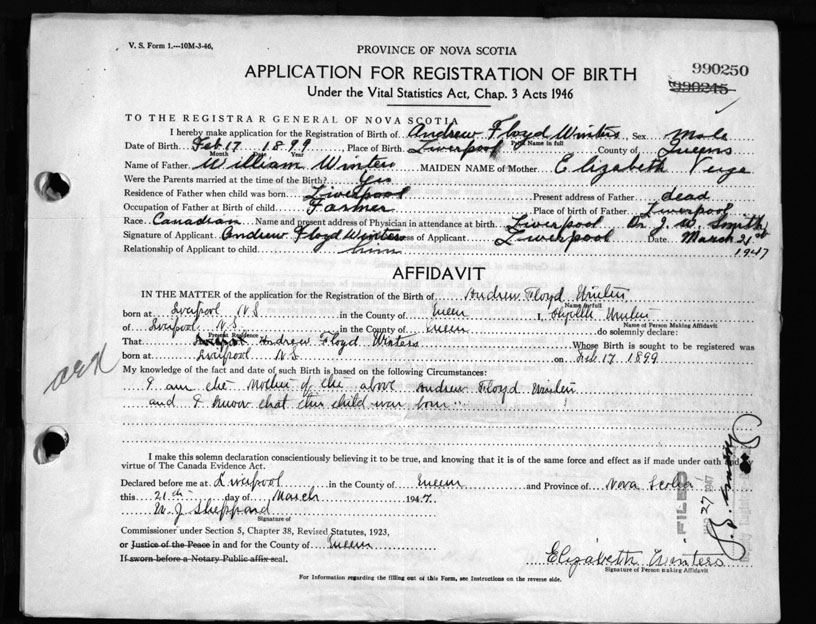 V. S. Form 1.—10M-3-46.
PROVINCE OF NOVA SCOTIA
APPLICATION FOR REGISTRATION OF BIRTH
990250
990245
Under the Vital Statistics Act, Chap. 3 Acts 1946
TO THE REGISTRAR GENERAL OF NOVA SCOTIA
I hereby make application for the Registration of Birth of Andrew Floyd Winters, Sex Male
Print Name in full
Date of Birth Feb 17 1899, Place of Birth Liverpool County of Queens
Month Year
Name of Father William Winters MAIDEN NAME of Mother Elizabeth
Were the Parents married at the time of the Birth? Yes
Residence of Father when child was born Liverpool Present address of Father dead
Occupation of Father at Birth of child Farmer Place of birth of Father Liverpool
Race Canadian Name and present address of Physician in attendance at Birth Liverpool Dr J. W. Smith
Signature of Applicant Andrew Floyd Winters ess of Applicant Liverpool Date March 21st 1947
Relationship of Applicant to child him
AFFIDAVIT
IN THE MATTER of the application for the Registration of the Birth of Andrew Floyd Winters
Name in full
born at Liverpool N.S. in the County of Queen I, Winters
Name of Person Making Affidavit
of Liverpool N.S. in the County of Queen do solemnly declare:
Present Residence
That Andrew Floyd Winters Whose Birth is sought to be registered was
born at Liverpool N.S. on Feb. 17 1899
My knowledge of the fact and date of such Birth is based on the following Circumstances:
I am the Mother of the above Andrew Floyd Winters
and I know that this child was born
I make this solemn declaration conscientiously believing it to be true, and knowing that it is of the same force and effect as if made under oath and
virtue of The Canada Evidence Act.
Declared before me at Liverpool in the County of Queen and Province of Nova Scotia
this 21st day of March 1947
W. J. Sheppard
Signature of
Commissioner under Section 5, Chapter 38, Revised Statutes, 1923,
or Justice of the Peace in and for the County of Queen
If sworn before a Notary Public affix seal.
Elizabeth Winters
Signature of Person making Affidavit
For Information regarding the filling out of this Form, see Instructions on the reverse side.
FILED
27 1947